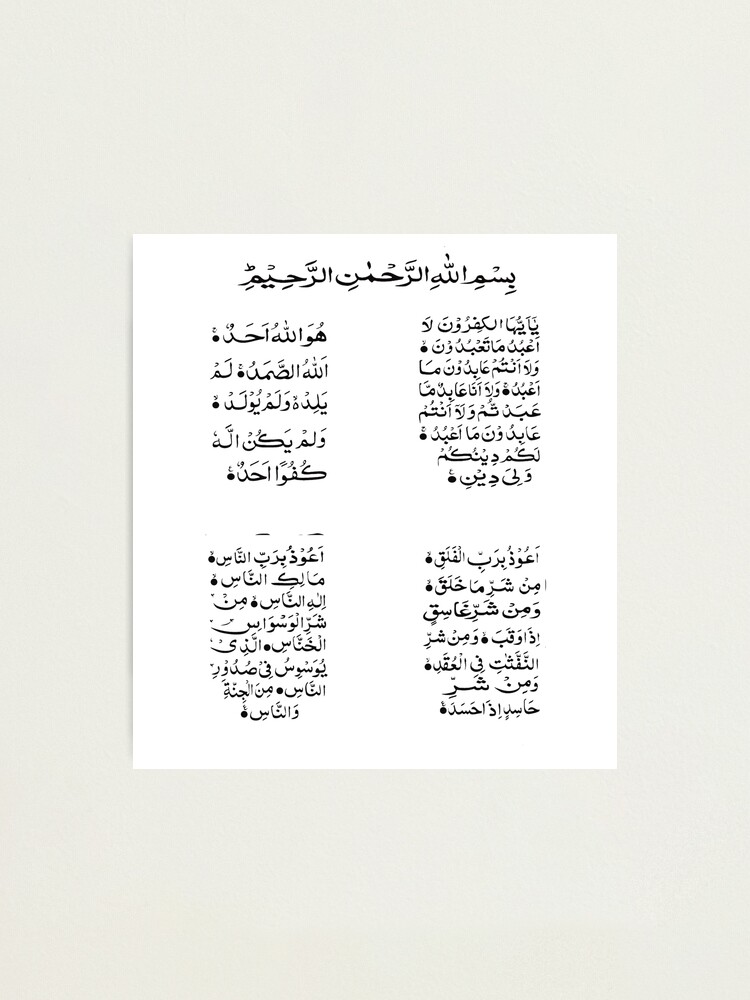 بِسْمِ اللهِ الرَّحْمٰنِ الرَّحِيْمِ
يٰۤاَيُّهَا الكٰفِرُوْنَ لَا
اَعْبُدُ مَا تَعْبُدُوْنَ ۙ
وَلَا اَنْتُمْ عَابِدُوْنَ مَا
اَعْبُدُ ۚ وَلَا اَنَا عَابِدٌ مَّا
عَبَدْ تُّمْ وَلَاۤ اَنْتُمْ
عَابِدُوْنَ مَا اَعْبُدُ ۚ
لَكُمْ دِيْنُكُمْ
وَلِىَ دِيْنِ ۚ
هُوَ اللهُ اَحَدٌ ۚ
اَللهُ الصَّمَدُ ۚ لَمْ
يَلِدْ ۙ وَلَمْ يُوْلَدْ ۙ
وَلَمْ يَكُنْ لَّهٗ
كُفُوًا اَحَدٌ ۚ
اَعُوْذُ بِرَبِّ الْفَلَقِ ۙ
مِنْ شَرِّ مَا خَلَقَ ۙ
وَمِنْ شَرِّ غَاسِقٍ
اِذَا وَقَبَ ۙ وَمِنْ شَرِّ
النَّفّٰثٰتِ فِى الْعُقَدِ ۙ
وَمِنْ شَرِّ
حَاسِدٍ اِذَا حَسَدَ ۚ
اَعُوْذُ بِرَبِّ النَّاسِ ۙ
مَالِكِ النَّاسِ ۙ
اِلٰهِ النَّاسِ ۙ مِنْ
شَرِّ الْوَسْوَاسِ
الْخَنَّاسِ ۙ الَّذِىْ
يُوَسْوِسُ فِىْ صُدُوْرِ
النَّاسِ ۙ مِنَ الْجِنَّةِ
وَالنَّاسِ ۚ